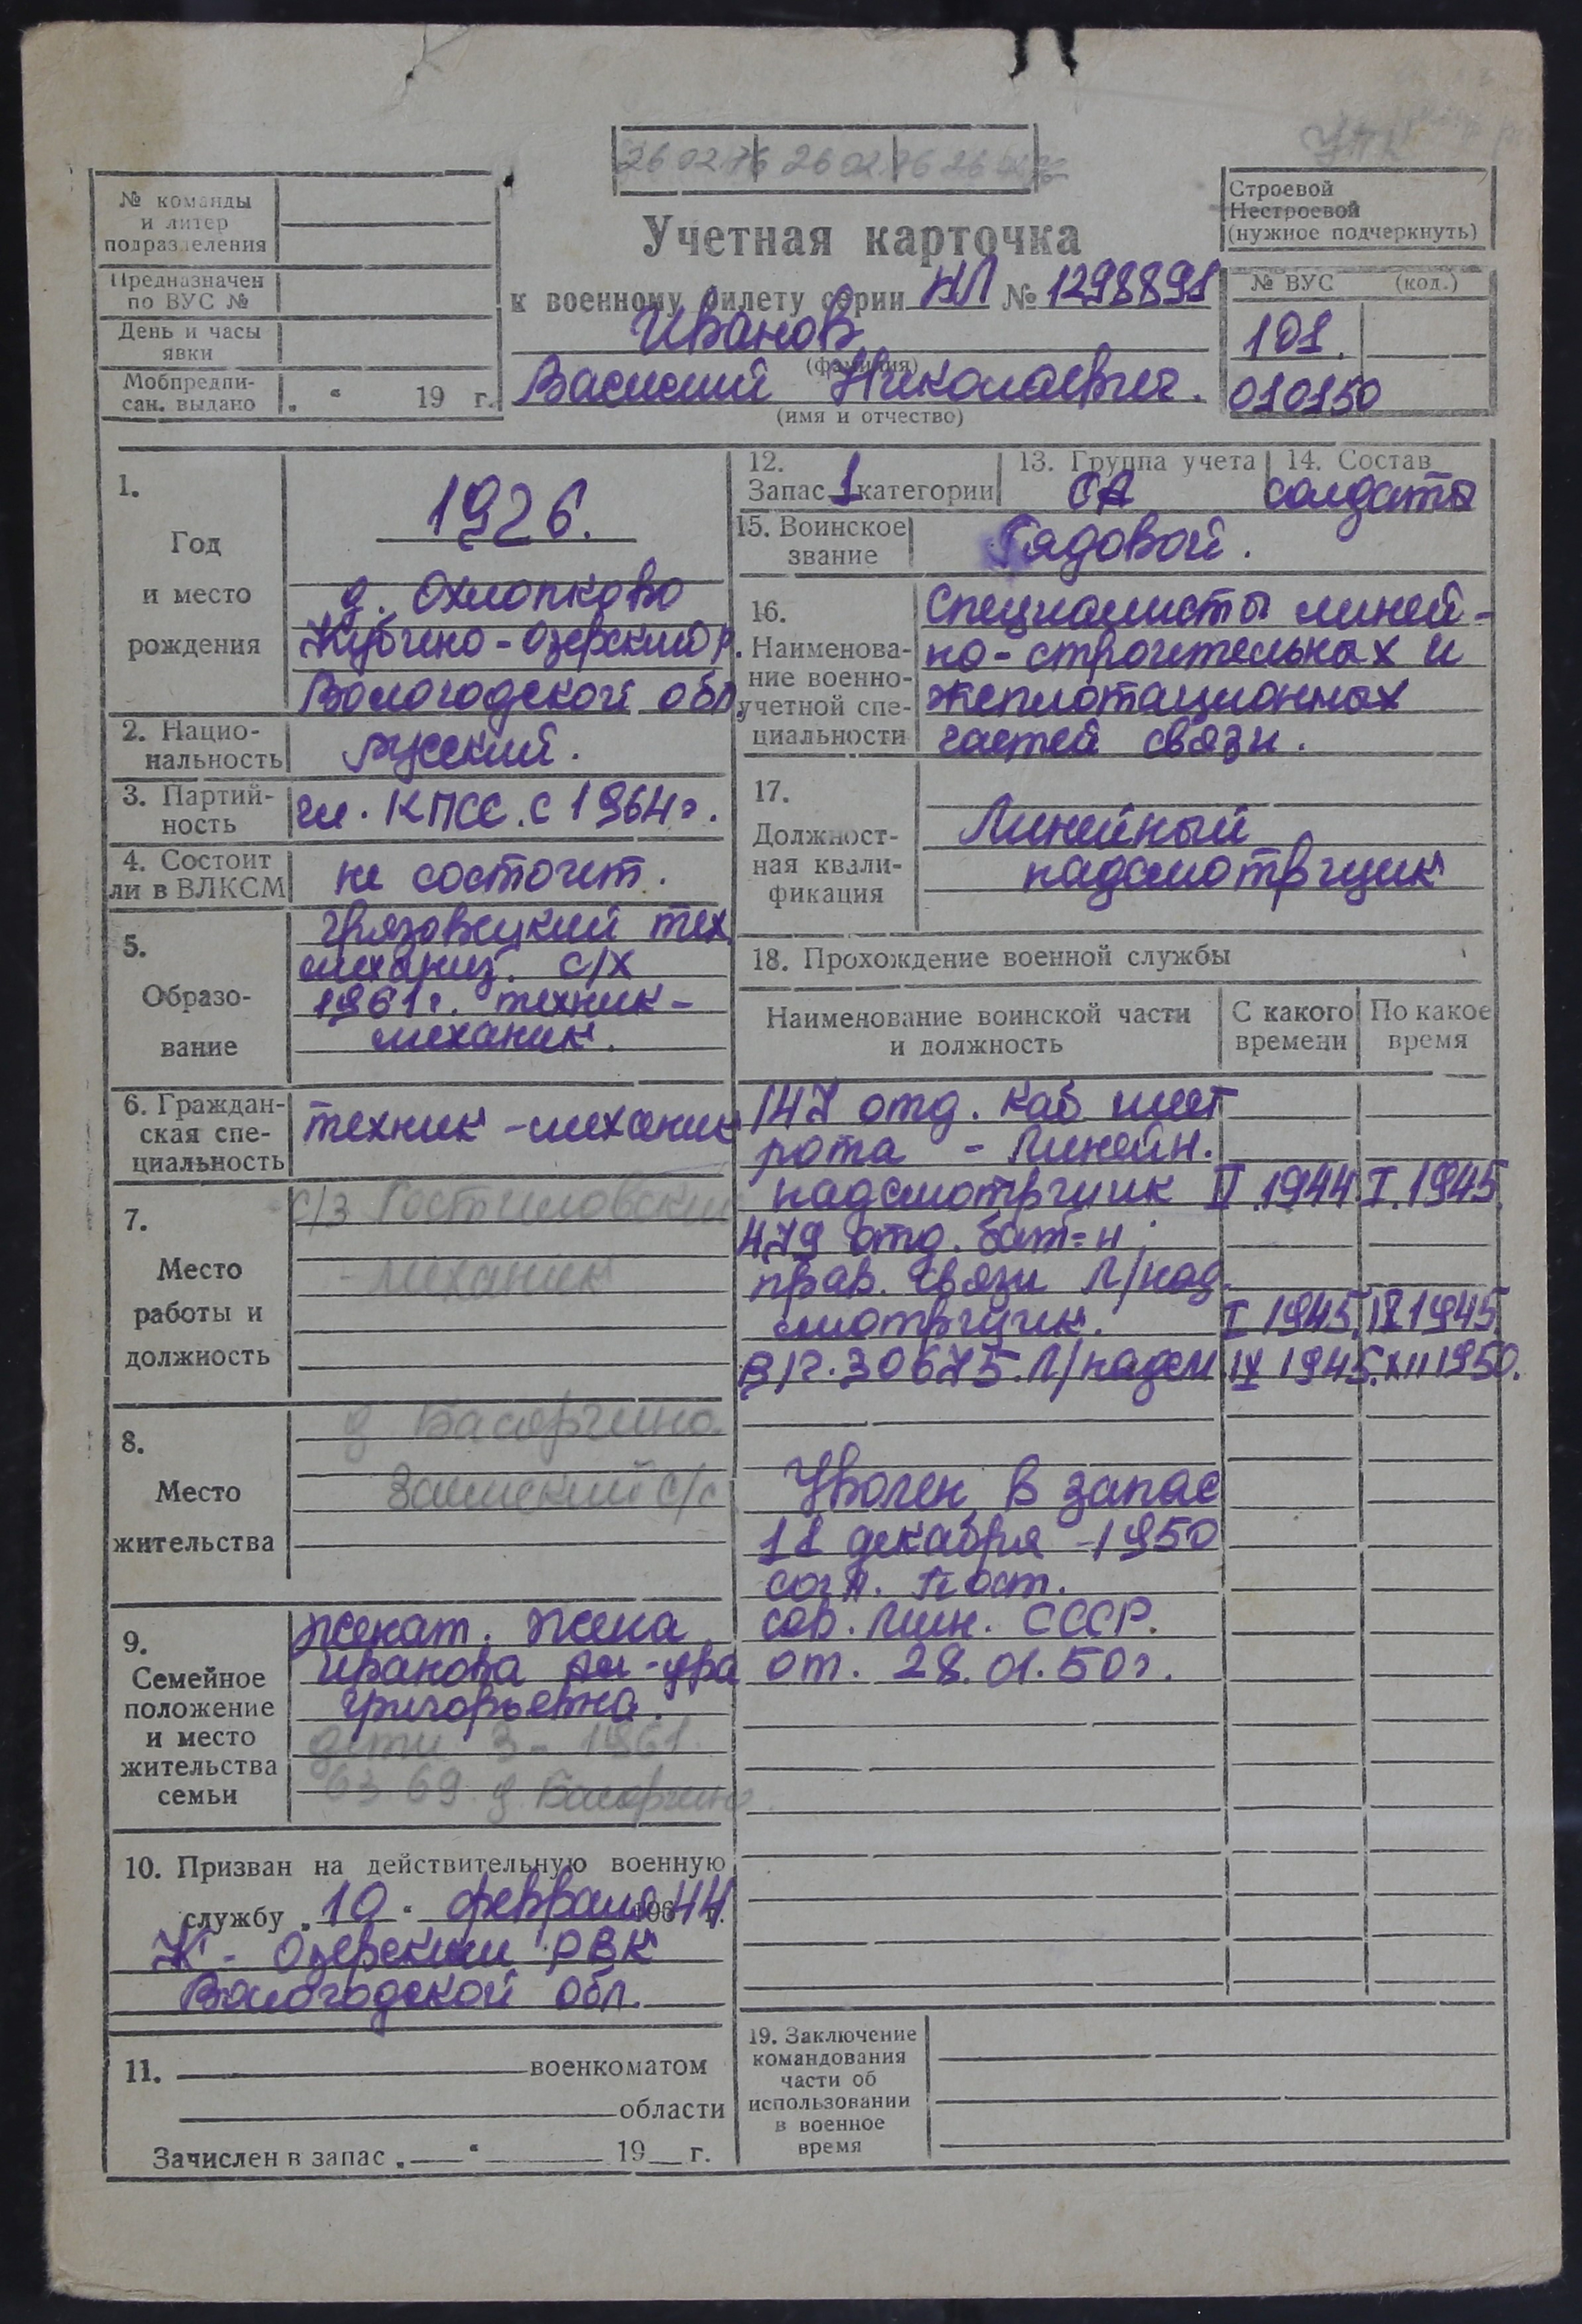 26 02 76 26 02 76 26
№ команды
и литер
подразделения
Предназначен
по ВУС №
День и часы
явки
Мобпредпи-
сан. выдано „ “ 19 г.
Учетная карточка
к военному билету серии НЛ № 1298891
Иванов
(фамилия)
Василий Николаевич.
(имя и отчество)
Строевой
Нестроевой
(нужное подчеркнуть)
№ ВУС (код.)
101.
010150
1.
Год
и место
рождения
1926.
д. Охлопково
Кубено-Озерский р.
Вологодской обл.
2. Нацио-
нальность
русский.
3. Партий-
ность
чл. КПСС. с 1964 г.
4. Состоит
ли в ВЛКСМ
не состоит.
5.
Образо-
вание
Грязовецкий тех.
механиз. с/х
1961 г. техник-
механик.
6. Граждан-
ская спе-
циальность
техник-механик
7.
Место
работы и
должность
с/з Ростиловский
- механик
8.
Место
жительства
д
с/с
9.
Семейное
положение
и место
жительства
семьи
женат. жена
Иванова
Григорьевна.
дети 3 - 1961
63 69 д.
10. Призван на действительную военную
службу „10“ февраля 196 44 г.
К-Озерским РВК
Вологодской обл.
11. военкоматом
области
Зачислен в запас „ “ 19 г.
12.
Запас 1 категории
13. Группа учета
СА
14. Состав
солдаты
15. Воинское
звание
Рядовой.
16.
Наименова-
ние военно-
учетной спе-
циальности
Специалисты линей-
но-строительных и
эксплотационных
частей связи.
17.
Должност-
ная квали-
фикация
Линейный
надсмотрщик
18. Прохождение военной службы
Наименование воинской части
и должность
С какого
времени
По какое
время
147 отд. каб шест
рота - Линейн.
надсмотрщик II.1944. I.1945.
479 отд. бат-н
прав. связи Л/над
смотрщик. I 1945. IX 1945.
В/ч. 30675. Л/надсм IX 1945. XII 1950.
Уволен в запас
11 декабря 1950
согл. Пост.
сов. Мин. СССР.
от. 28.01.50 г.
19. Заключение
командования
части об
использовании
в военное
время